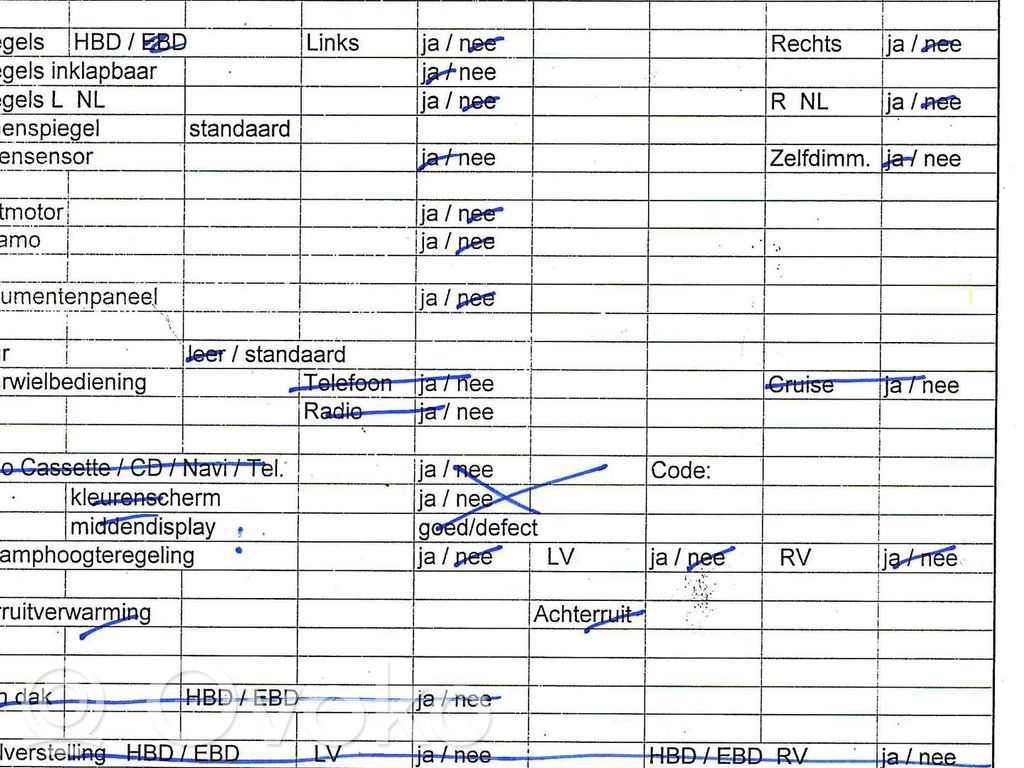 egels HBD / EBD Links ja / nee Rechts ja / nee
egels inklapbaar ja / nee
egels L NL ja / nee R NL ja / nee
enspiegel standaard
ensensor ja / nee Zelfdimm. ja / nee
tmotor ja / nee
amo ja / nee
umentenpaneel ja / nee
r leer / standaard
rwielbediening Telefoon ja / nee Cruise ja / nee
Radio ja / nee
o Cassette / CD / Navi / Tel. ja / nee Code:
kleurenscherm ja / nee
middendisplay : goed/defect
amphoogteregeling ja / nee LV ja / nee RV ja / nee
rruitverwarming Achterruit
n dak HBD / EBD ja / nee
lverstelling HBD / EBD LV ja / nee HBD / EBD RV ja / nee
© Ovoko